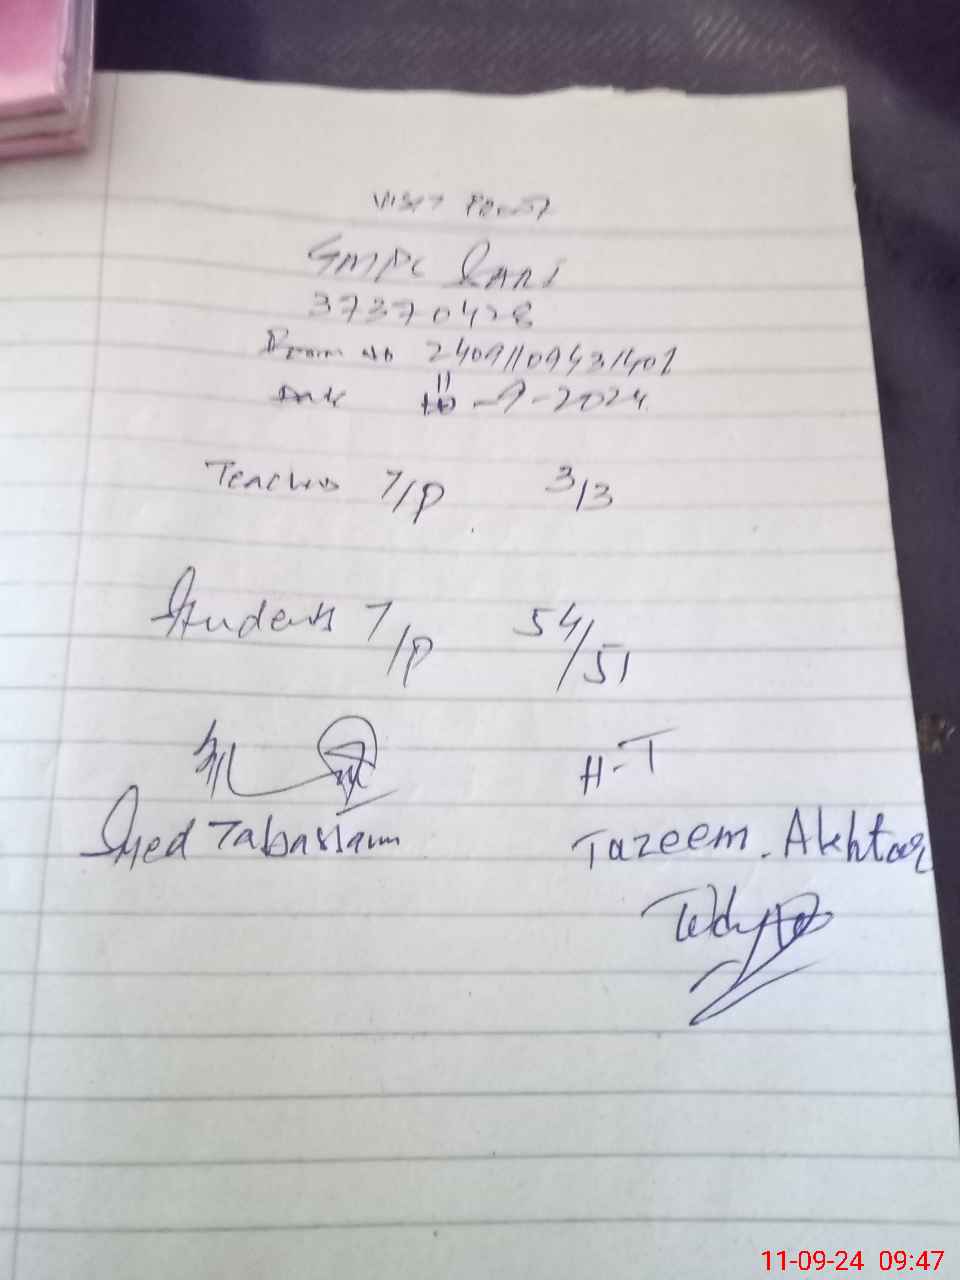 VISIT PROOF
GMPS
37370428
Room No 240911094311401
Date 11-9-2024
Teachers T/P 3/3
Students T/P 54/51
H-T
Syed Tabassam
Tazeem. Akhtar
11-09-24 09:47